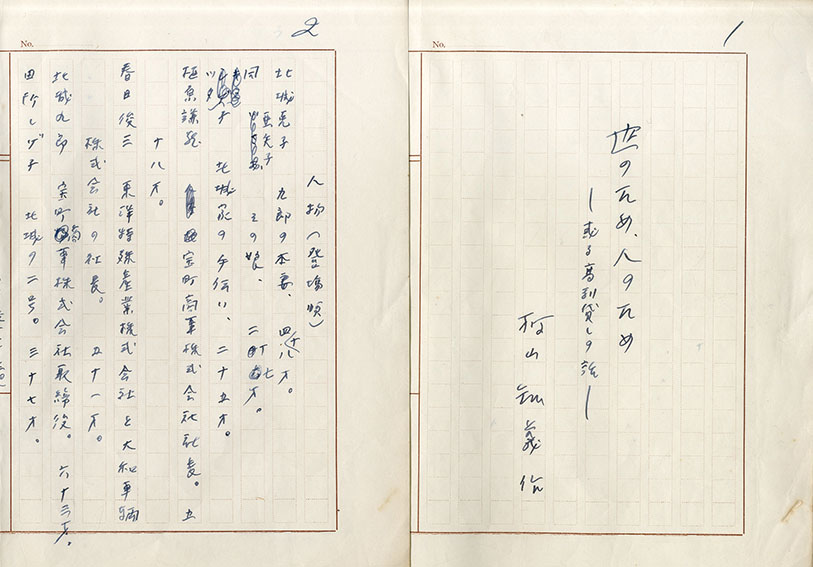 No.
1
世のため、人のため
―或る高利貸しの話―
村山知義作
No.
2
人物(登場順)
北城克子 九郎の本妻、四十八才。
同 亜矢子 その娘、二十七才。
ツタ子 北城家の手伝い、二十五才。
極東謙 宝町商事株式会社社長。五
十八才。
春日俊三 東洋特殊産業株式会社と大和車輌
株式会社の社長。五十一才。
北城九郎 宝町商事株式会社取締役。六十三才。
田所しげ子 北城の二号。三十七才。